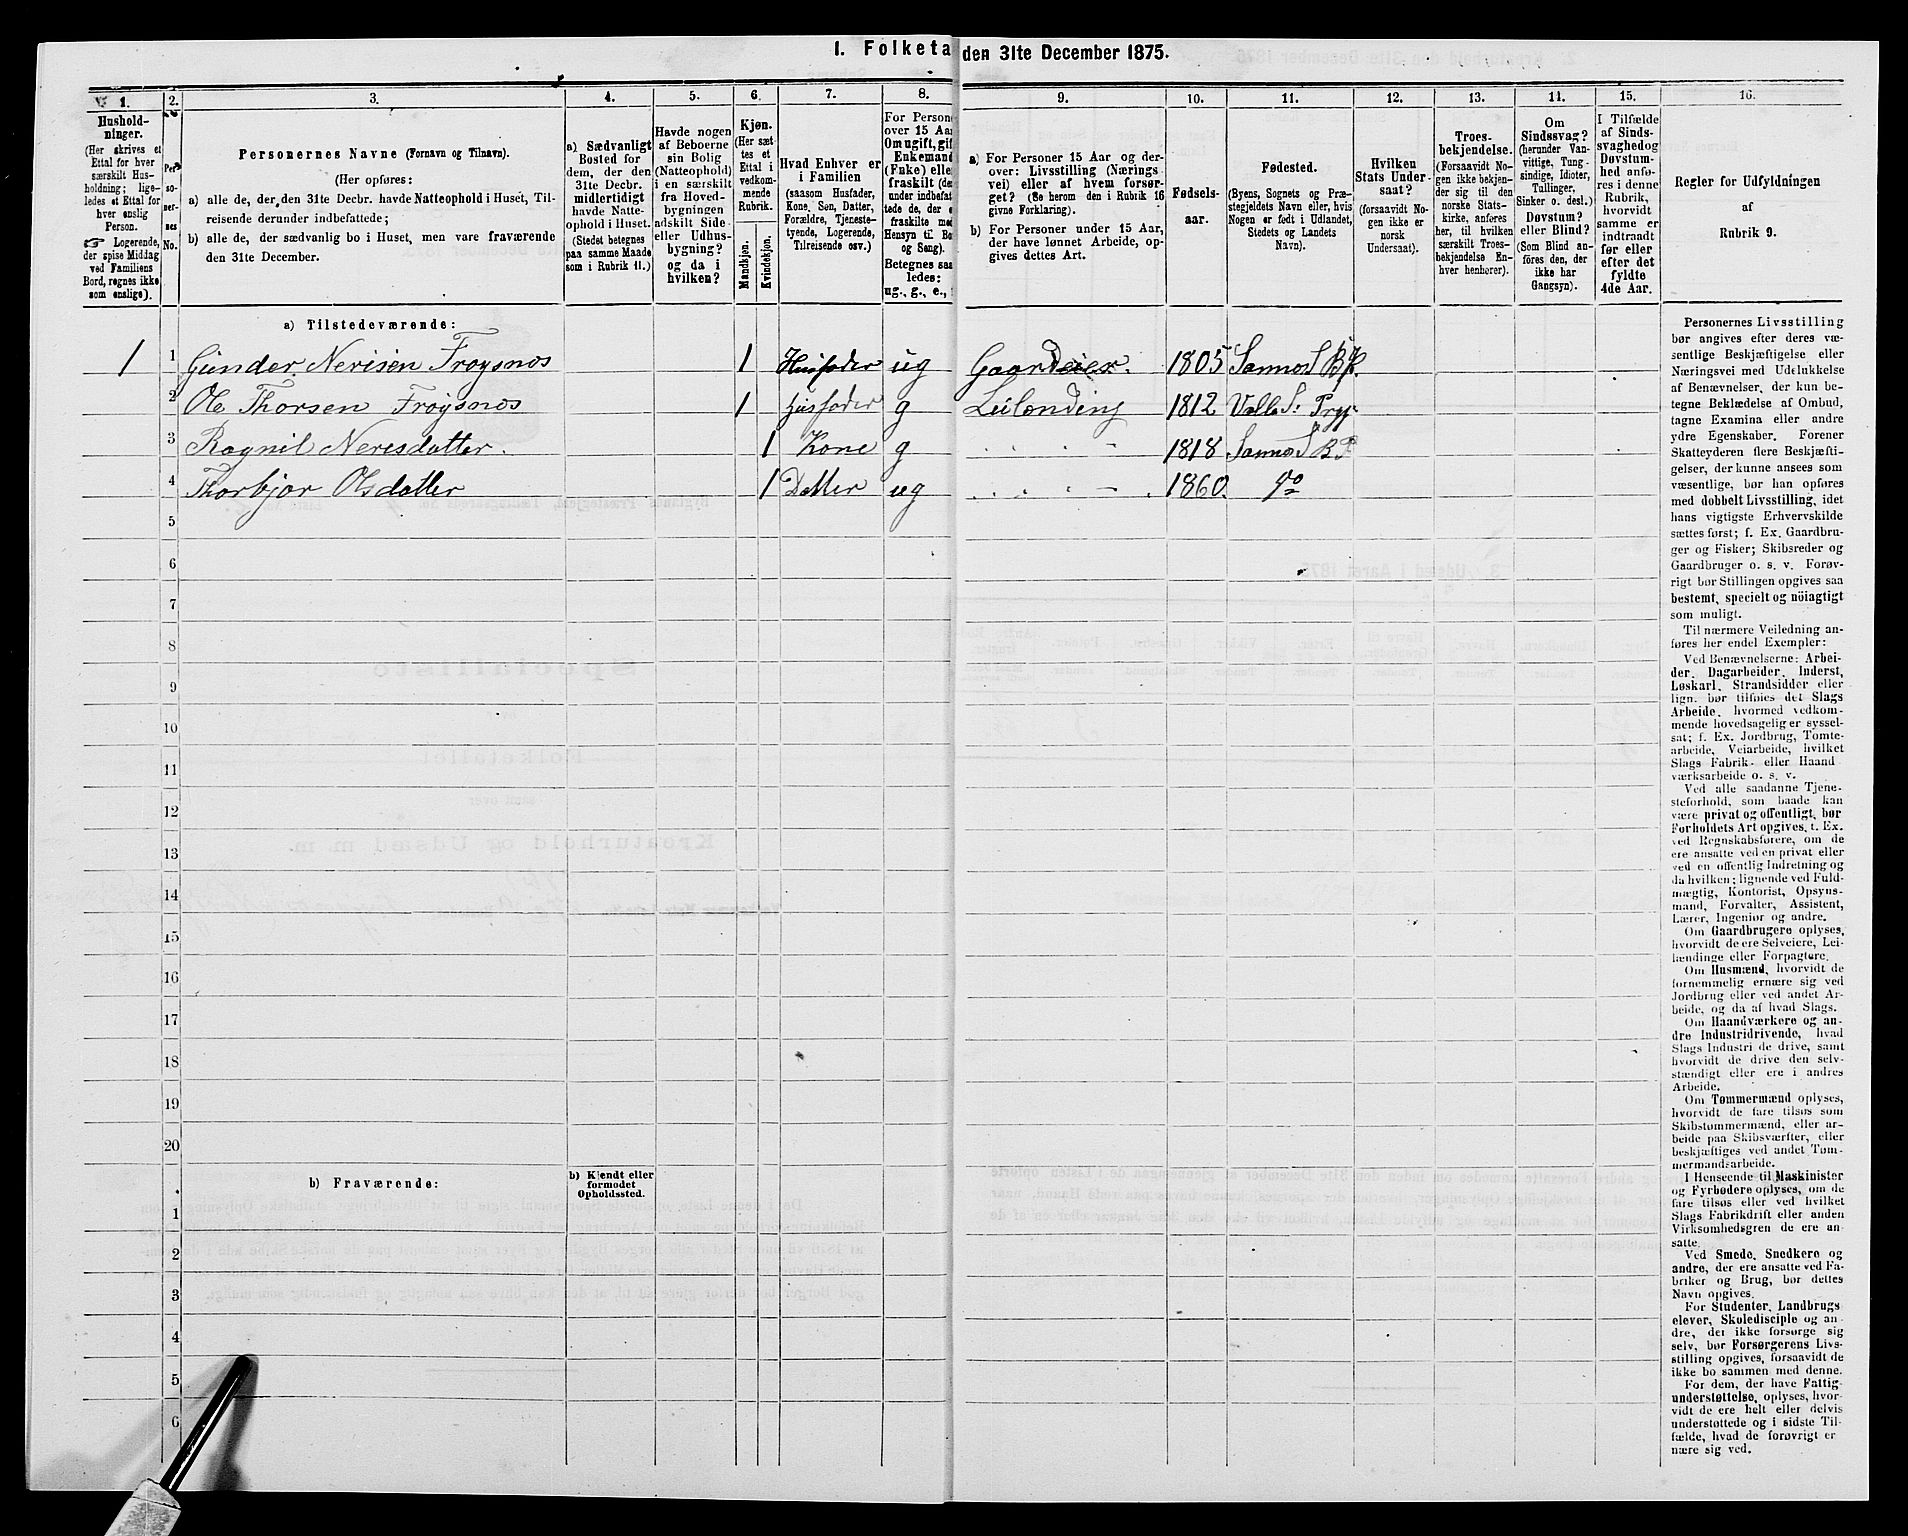 1. Folketa den 31te December 1875.
1. 2. 3. 4. 5. 6. 7. 8. 9. 10. 11. 12. 13. 14. 15. 16.
Hushold-
ninger.
(Her skrives et
Ettal for hver
særskilt Hus-
holdning; lige-
ledes et Ettal for
hver enslig
Person.
☞ Logerende,
der spise Middag
ved Familiens
Bord, regnes ikke
som enslige).
Per-
so-
ner-
nes
No.
Personernes Navne (Fornavn og Tilnavn).
(Her opføres:
a) alle de, der den 31te Decbr. havde Natteophold i Huset, Til-
reisende derunder indbefattede;
b) alle de, der sædvanlig bo i Huset, men vare fraværende
den 31te December.
a) Sædvanligt
Bosted for
dem, der den
31te Decbr.
midlertidigt
havde Natte-
ophold i Huset.
(Stedet betegnes
paa samme Maade
som i Rubrik 11.)
Havde nogen
af Beboerne
sin Bolig
(Natteophold)
i en særskilt
fra Hoved-
bygningen
adskilt Side-
eller Udhus-
bygning?
og da i
hvilken?
Kjøn.
(Her sæt-
tes et
Ettal i
vedkom-
mende
Rubrik.
Mandkjøn.
Kvindekjøn.
Hvad Enhver er
i Familien
(saasom Husfader,
Kone, Søn, Datter,
Forældre, Tjeneste-
tyende, Logerende,
Tilreisende osv.)
For Persone
over 15 Aar
Om ugift, gift
Enkemand
(Enke) elle
fraskilt (de
under indbefat
tede de, der e
fraskilte me
Hensyn til Bo
og Seng).
Betegnes saa
ledes:
ug., g., e.,
a) For Personer 15 Aar og der-
over: Livsstilling (Nærings
vei) eller af hvem forsør-
get? (Se herom den i Rubrik 16
givne Forklaring).
b) For Personer under 15 Aar,
der have lønnet Arbeide, op-
gives dettes Art.
Fødsels-
aar.
Fødested.
(Byens, Sognets og Præ-
stegjeldets Navn eller, hvis
Nogen er født i Udlandet,
Stedets og Landets
Navn).
Hvilken
Stats Under-
saat?
(forsaavidt No-
gen ikke er
norsk
Undersaat).
Troes-
bekjendelse.
(Forsaavidt No-
gen ikke bekjen-
der sig til den
norske Stats-
kirke, anføres
her, til hvilken
særskilt Troes-
bekjendelse En-
hver henhører).
Om
Sindssvag?
(herunder Van-
vittige, Tung-
sindige, Idioter,
Tullinger,
Sinker o. desl.)
Døvstum?
eller Blind?
(Som Blind an-
føres den, der
ikke har
Gangsyn).
I Tilfælde
af Sinds-
svaghed og
Døvstum-
hed anfø-
res i denne
Rubrik,
hvorvidt
samme er
indtraadt
før eller
efter det
fyldte
4de Aar.
Regler for Udfyldningen
af
Rubrik 9.
a) Tilstedeværende:
1 1 Gunder Nerisen Frøysnøs 1 Husfader ug Gaardeier. 1805 Sannøs S B.P.
2 Ole Thorsen Frøysnøs 1 husfader g Leilænding 1812 Valle S:
3 Rognil Nerisdatter. 1 Kone g 1818 Sannøs S B P
4 Thorbjor Olsdatter 1 Datter ug 1860. do
5
6
7
8
9
10
11
12
13
14
15
16
17
18
19
20
b) Fraværende:
b) Kjendt eller
formodet
Opholdssted.
1
2
3
4
5
6
Personernes Livsstilling
bør angives efter deres væ-
sentlige Beskjæftigelse eller
Næringsvei med Udelukkelse
af Benævnelser, der kun be-
tegne Beklædelse af Ombud,
tagne Examina eller andre
ydre Egenskaber. Forener
Skatteyderen flere Beskjæfti-
gelser, der kunne ansees som
væsentlige, bør han opføres
med dobbelt Livsstilling, idet
hans vigtigste Erhvervskilde
sættes først; f. Ex. Gaardbru-
ger og Fisker; Skibsreder og
Gaardbruger o. s. v. Forøv-
rigt bør Stillingen opgives saa
bestemt, specielt og nøiagtigt
som muligt.
Til nærmere Veiledning an-
føres her endel Exempler:
Ved Benævnelserne: Arbei-
der, Dagarbeider, Inderst,
Løskarl, Strandsidder eller
lign. bør tilføies det Slags
Arbeide, hvormed vedkom-
mende hovedsagelig er syssel-
sat; f. Ex. Jordbrug, Tomte-
arbeide, Veiarbeide, hvilket
Slags Fabrik- eller Haand
værksarbeide o. s. v.
Ved alle saadanne Tjene-
steforhold, som baade kan
være privat og offentligt, bør
Forholdets Art opgives, t. Ex.
ved Regnskabsførere, om de
ere ansatte ved en privat eller
ved en offentlig Indretning og
da hvilken; lignende ved Fuld-
mægtig, Kontorist, Opsyns-
mand, Forvalter, Assistent,
Lærer, Ingeniør og andre.
Om Gaardbrugere oplyses,
hvorvidt de ere Selveiere, Lei-
lændinge eller Forpagtere.
Om Husmænd, hvorvidt de
fornemmelig ernære sig ved
Jordbrug eller ved andet Ar-
beide, og da af hvad Slags.
Om Haandværkere og an-
dre Industridrivende, hvad
Slags Industri de drive, samt
hvorvidt de drive den selv-
stændigt eller ere i andres
Arbeide.
Om Tømmermænd oplyses,
hvorvidt de fare tilsøs som
Skibstømmermænd, eller ar-
beide paa Skibsværfter, eller
beskjæftiges ved andet Tøm-
mermandsarbeide.
I Henseende til Maskinister
og Fyrbødere oplyses, om de
fare tilsøs eller ved hvilket
Slags Fabrikdrift eller anden
Virksomhedsgren de ere an-
satte.
Ved Smede, Snedkere og
andre, der ere ansatte ved Fa-
briker og Brug, bør dettes
Navn opgives.
For Studenter, Landbrugs
elever, Skoledisciple og an-
dre, der ikke forsørge sig
selv, bør Forsørgerens Livs-
stilling opgives, forsaavidt de
ikke bo sammen med denne.
For dem, der have Fattig-
understøttelse, oplyses, hvor-
vidt de ere helt eller delvis
understøttede og i sidste Til-
fælde, hvad de forøvrigt er
nære sig ved.